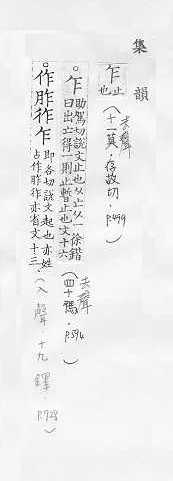 集韻
乍 止也（去聲·十一莫·存故切·P499）
。乍 助駕切說文止也从亡从一徐鍇曰出亡得一則止暫止也文十六（去聲·四十禡·P594）
。作胙飵乍 即各切說文起也亦姓古作胙飵亦省文十三（入聲·十九鐸·P728）